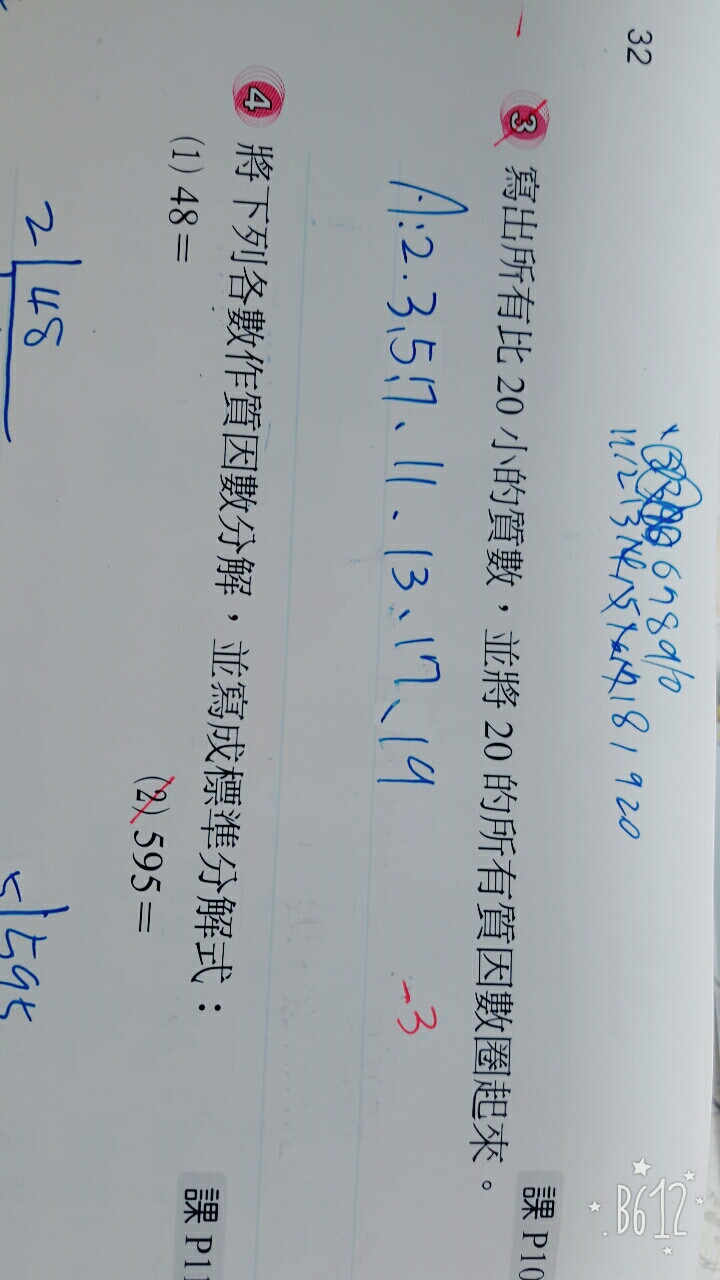 32
6 7 8 9 10
11 12 13 14 15 16 17 18 19 20
3 寫出所有比 20 小的質數，並將 20 的所有質因數圈起來。 課 P10
A:2.3、5、7、11、13、17、19 -3
4 將下列各數作質因數分解，並寫成標準分解式： 課 P11
(1) 48＝ (2) 595＝
2 48 5 595
B612